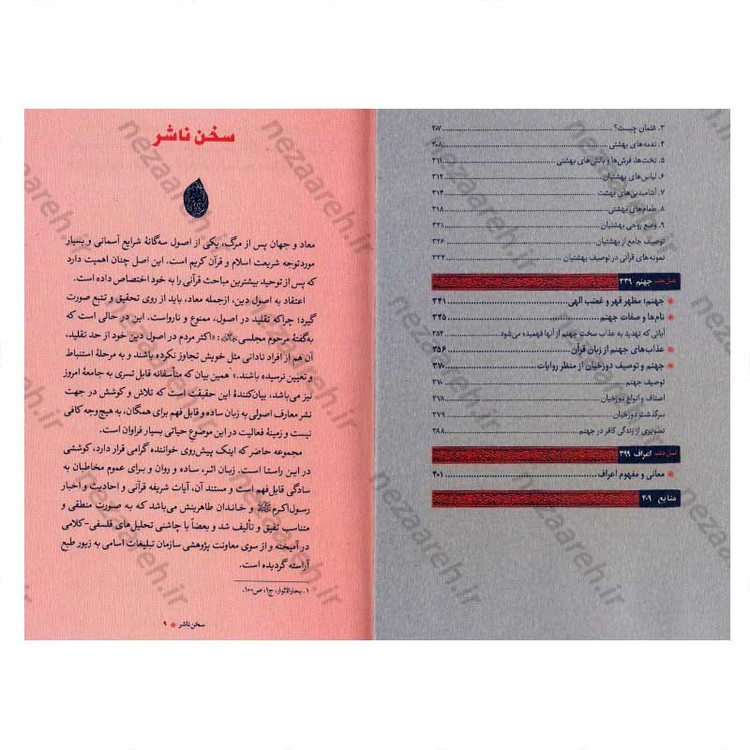 ۳. غلمان چیست؟ ۳۰۷
۴. نغمه‌های بهشتی ۳۰۸
۵. تخت‌ها، فرش‌ها و بالش‌های بهشتی ۳۱۱
۶. لباس‌های بهشتیان ۳۱۳
۷. آشامیدنی‌های بهشت ۳۱۴
۸. طعام‌های بهشتی ۳۱۸
۹. وضع روحی بهشتیان ۳۲۱
توصیف جامع از بهشتیان ۳۲۶
نمونه‌های قرآنی در توصیف بهشتیان ۳۳۲
جهنم ۳۳۹
جهنم؛ مظهر قهر و غضب الهی ۳۴۱
نام‌ها و صفات جهنم ۳۴۵
آیاتی که تهدید به عذاب سخت جهنم از آنها فهمیده می‌شود ۳۵۴
عذاب‌های جهنم از زبان قرآن ۳۵۶
جهنم و توصیف دوزخیان از منظر روایات ۳۷۰
توصیف جهنم ۳۷۰
اصناف و انواع دوزخیان ۳۷۶
سرگذشت دوزخیان ۳۷۹
تصویری از زندگی کافر در جهنم ۳۸۸
اعراف ۳۹۹
معانی و مفهوم اعراف ۴۰۱
منابع ۴۰۹
سخن ناشر
معاد و جهان پس از مرگ، یکی از اصول سه‌گانهٔ شرایع آسمانی و بسیار
موردتوجه شریعت اسلام و قرآن کریم است. این اصل چنان اهمیت دارد
که پس از توحید بیشترین مباحث قرآنی را به خود اختصاص داده است.
اعتقاد به اصول دین، ازجمله معاد، باید از روی تحقیق و تتبع صورت
گیرد؛ چراکه تقلید در اصول، ممنوع و نارواست. این در حالی است که
به‌گفتهٔ مرحوم مجلسی: «اکثر مردم در اصول دین خود از حد تقلید،
آن هم از افراد نادانی مثل خویش تجاوز نکرده باشند و به مرحلهٔ استنباط
و تعیین نرسیده باشند.» همین بیان که متأسفانه قابل تسری به جامعهٔ امروز
نیز می‌باشد، بیان‌کنندهٔ این حقیقت است که تلاش و کوشش در جهت
نشر معارف اصولی به زبان ساده و قابل فهم برای همگان، به هیچ‌وجه کافی
نیست و زمینهٔ فعالیت در این موضوع حیاتی بسیار فراوان است.
مجموعه حاضر که اینک پیش‌روی خواننده گرامی قرار دارد، کوششی
در این راستا است. زبان اثر، ساده و روان و برای عموم مخاطبان به
سادگی قابل‌فهم است و مستند آن، آیات شریفه قرآنی و احادیث و اخبار
رسول‌اکرم ﷺ و خاندان طاهرینش می‌باشد که به صورت منطقی و
متناسب تلفیق و تألیف شد و بعضاً با چاشنی تحلیل‌های فلسفی-کلامی
در آمیخته و از سوی معاونت پژوهشی سازمان تبلیغات اسلامی به زیور طبع
آراسته گردیده است.
۱. بحارالانوار، ج۱، ص۱۰۰.
سخن ناشر ۹
nezaareh.ir